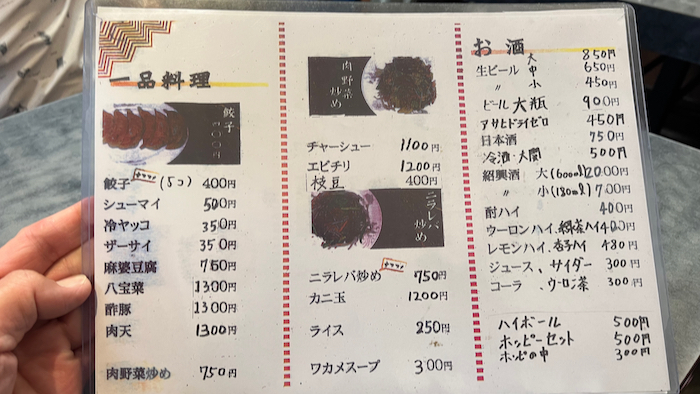 一品料理
餃子
餃子 (5コ) 400円
シューマイ 500円
冷ヤッコ 350円
ザーサイ 350円
麻婆豆腐 750円
八宝菜 1300円
酢豚 1300円
肉天 1300円
肉野菜炒め 750円
肉野菜炒め
チャーシュー 1100円
エビチリ 1200円
枝豆 400円
ニラレバ炒め
ニラレバ炒め 750円
カニ玉 1200円
ライス 250円
ワカメスープ 300円
お酒
生ビール 大 850円
中 650円
〃 小 450円
ビール 大瓶 900円
アサヒドライゼロ 450円
日本酒 750円
冷酒・大関 500円
紹興酒 大(600ml) 2000円
〃 小(180ml) 700円
酎ハイ 400円
ウーロンハイ・緑茶ハイ 400円
レモンハイ・杏子ハイ 480円
ジュース、サイダー 300円
コーラ、ウーロン茶 300円
ハイボール 500円
ホッピーセット 500円
ホッピの中 300円